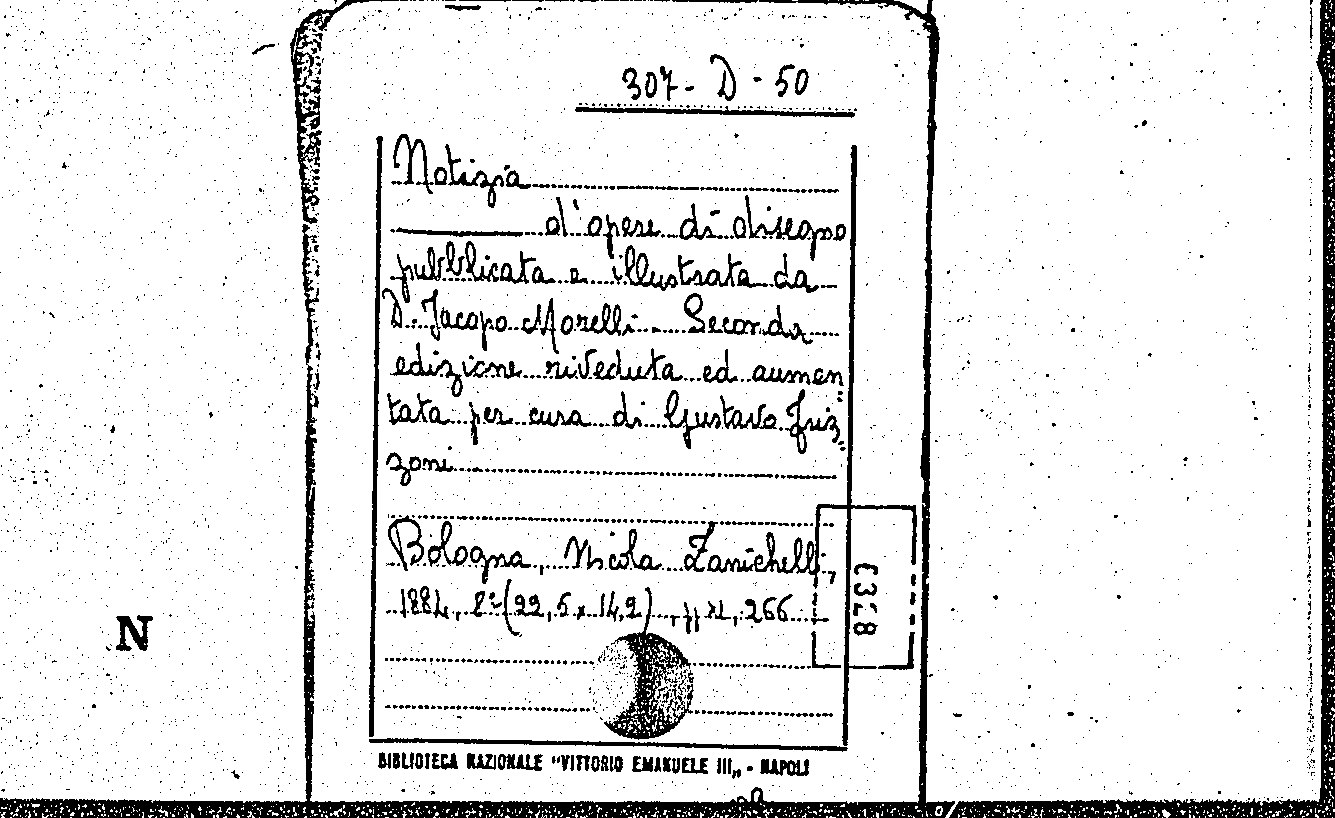 307 - D - 50
Notizia
d'opere di disegno
pubblicata e illustrata da
D. Jacopo Morelli. Seconda
edizione riveduta ed aumen
tata per cura di Gustavo Friz
zoni
Bologna, Nicola Zanichelli,
1884, 8º (22,5 x 14,2), pp XL, 266
BIBLIOTECA NAZIONALE "VITTORIO EMANUELE III„ - NAPOLI
N